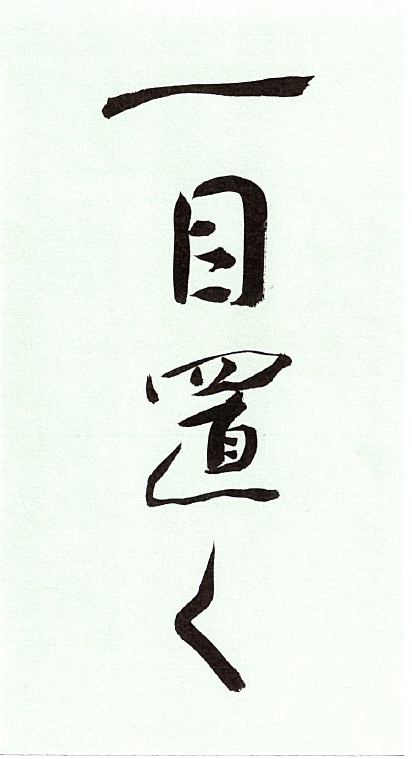 一目置く